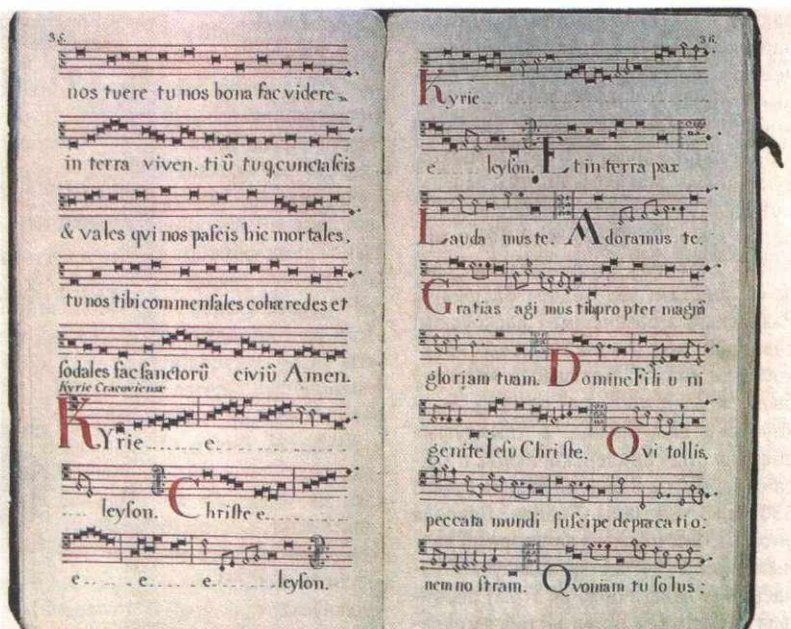 35.
nos tuere tu nos bona fac videre
in terra viven. tiū tu q, cuncta ſcis
& vales qvi nos paſcis hic mortales,
tu nos tibi commenſales cohæredes et
ſodales fac ſanctorū civiū Amen.
Kyrie Cracoviense
KYrie e
leyſon. Chriſte e
e e e leyſon.
36.
Kyrie
e leyſon. Et in terra pax
Lauda mus te. Adoramus te.
Gratias agi mus tibi pro pter magnā
gloriam tuam. Domine Fili u ni
genite Jeſu Chri ſte. Qvi tollis,
peccata mundi ſuſcipe depræca ti o:
nem no ſtram. Qvoniam tu ſo lus :